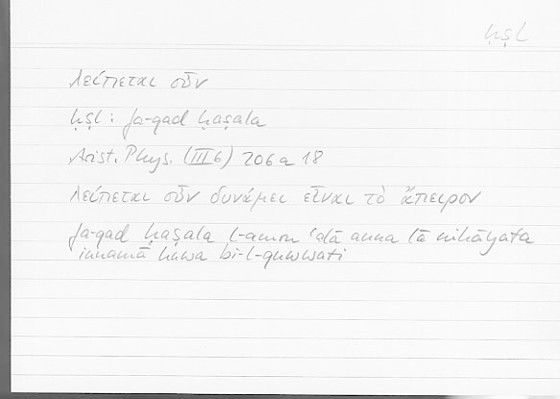 ḥṣl
λείπεται οὖν
ḥṣl : fa-qad ḥaṣala
Arist. Phys. (III 6) 206 a 18
λείπεται οὖν δυνάμει εἶναι τὸ ἄπειρον
fa-qad ḥaṣala l-amru ʿalā anna lā nihāyata
innamā huwa bi-l-quwwati